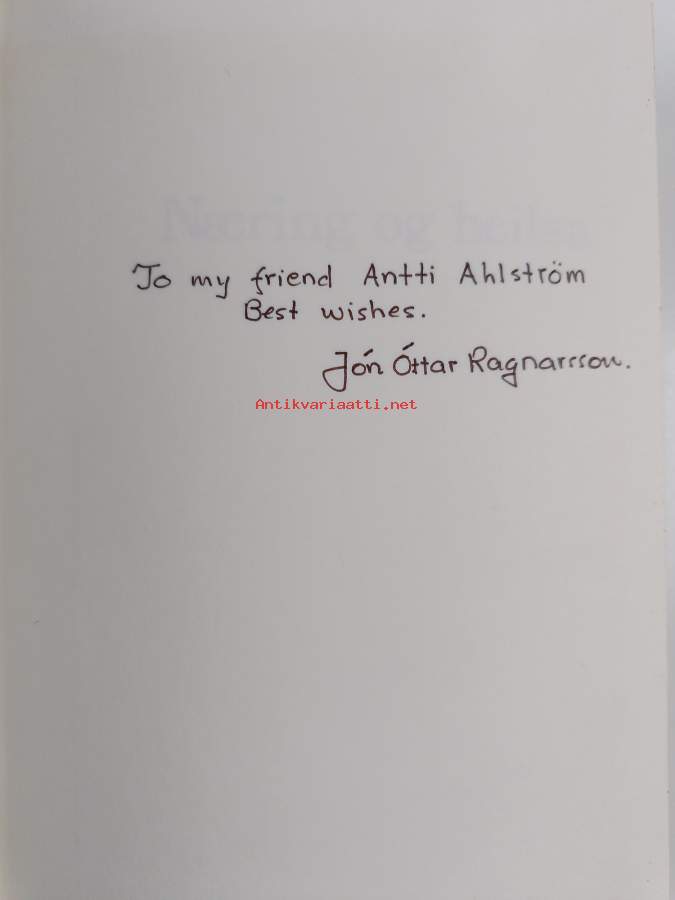 Næring og heilsa
To my friend Antti Ahlström
Best wishes.
Jón Óttar Ragnarsson.
Antikvariaatti.net